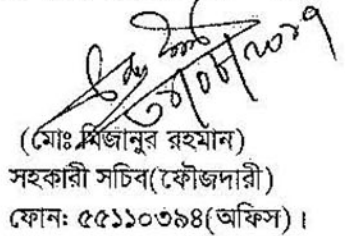 (মোঃ মিজানুর রহমান)
সহকারী সচিব(ফৌজদারী)
ফোন: ৫৫১১০৩৯৪(অফিস)।